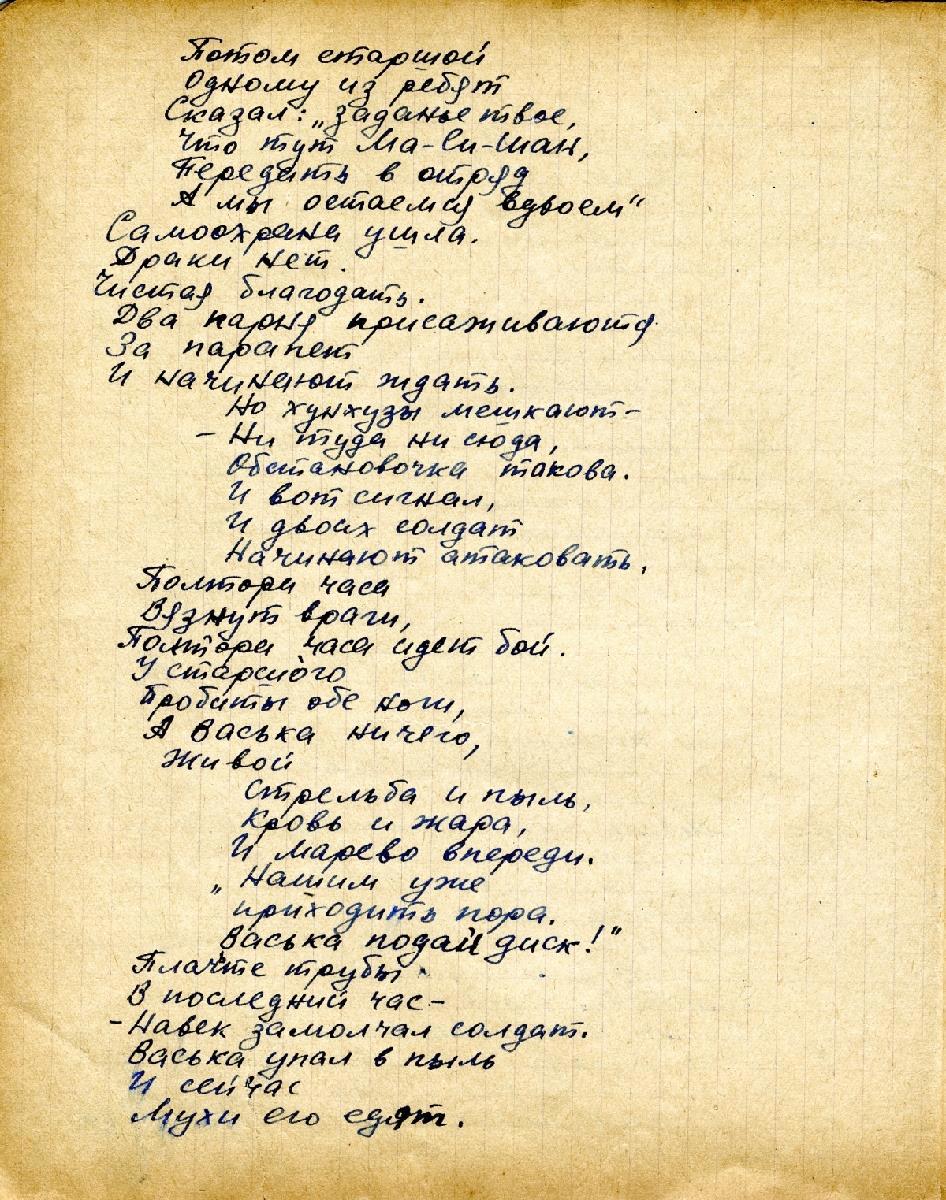 Потом старшой
Одному из ребят
Сказал: „заданье твое,
Что тут Ма-Си-Шан,
Передать в отряд
А мы остаемся вдвоем“
Самоохрана ушла.
Драки нет.
Чистая благодать.
Два парня присаживаются
За парапет
И начинают ждать.
Но хунхузы мешкают-
- Ни туда ни сюда,
Обстановочка такова.
И вот сигнал,
И двоих солдат
Начинают атаковать.
Полтора часа
Вязнут враги,
Полтора часа идет бой.
У старшого
Пробиты обе ноги,
А Васька ничего,
Живой
Стрельба и пыль,
Кровь и жара,
И марево впереди.
„Нашим уже
приходить пора.
Васька подай диск!“
Плачте трубы
В последний час-
- Навек замолчал солдат.
Васька упал в пыль
И сейчас
Мухи его едят.